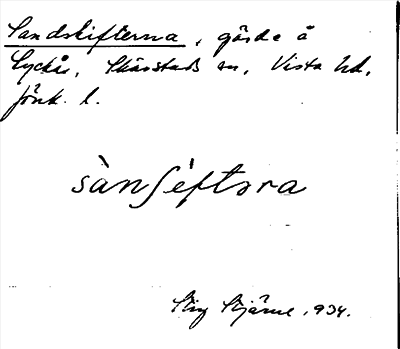 Sandskifterna, gärde å
Lyckås, Skärstads sn, Vista hd,
Jönk. l.
sànʃèftəra
Stig Stjärne, 934.